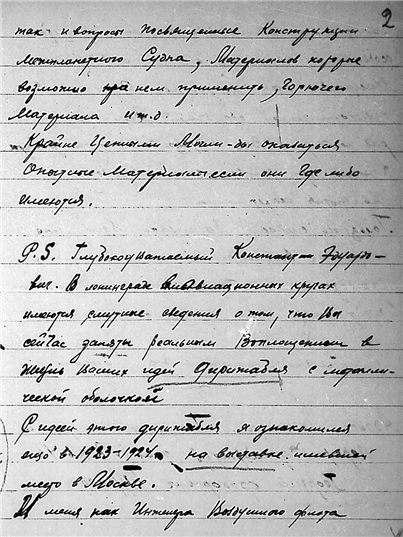 2
так и вопросы посвященные Конструкции
межпланетного Судна, Материалов которые
возможно на нем применить, Горючего
Материала и т.д.
Крайне Ценными Могли-бы оказаться
Опытные Материалы если они Где либо
имеются.
P.S. Глубокоуважаемый Константин Эдуардо-
вич. В ленинграде в Авиационных кругах
имеются смутные сведения о том, что Вы
сейчас заняты реальным Воплощением в
жизнь ваших идей Дирижабля с металли-
ческой оболочкой
С идеей этого дирижабля я ознакомился
ещё в 1923-1924г. на выставке имевшей
место в Москве.
И меня как Инженера Воздушного флота